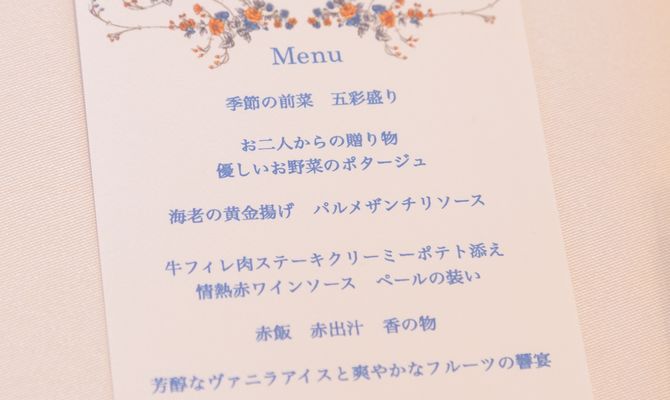 Menu
季節の前菜　五彩盛り
お二人からの贈り物
優しいお野菜のポタージュ
海老の黄金揚げ　パルメザンチリソース
牛フィレ肉ステーキクリーミーポテト添え
情熱赤ワインソース　ペールの装い
赤飯　赤出汁　香の物
芳醇なヴァニラアイスと爽やかなフルーツの饗宴